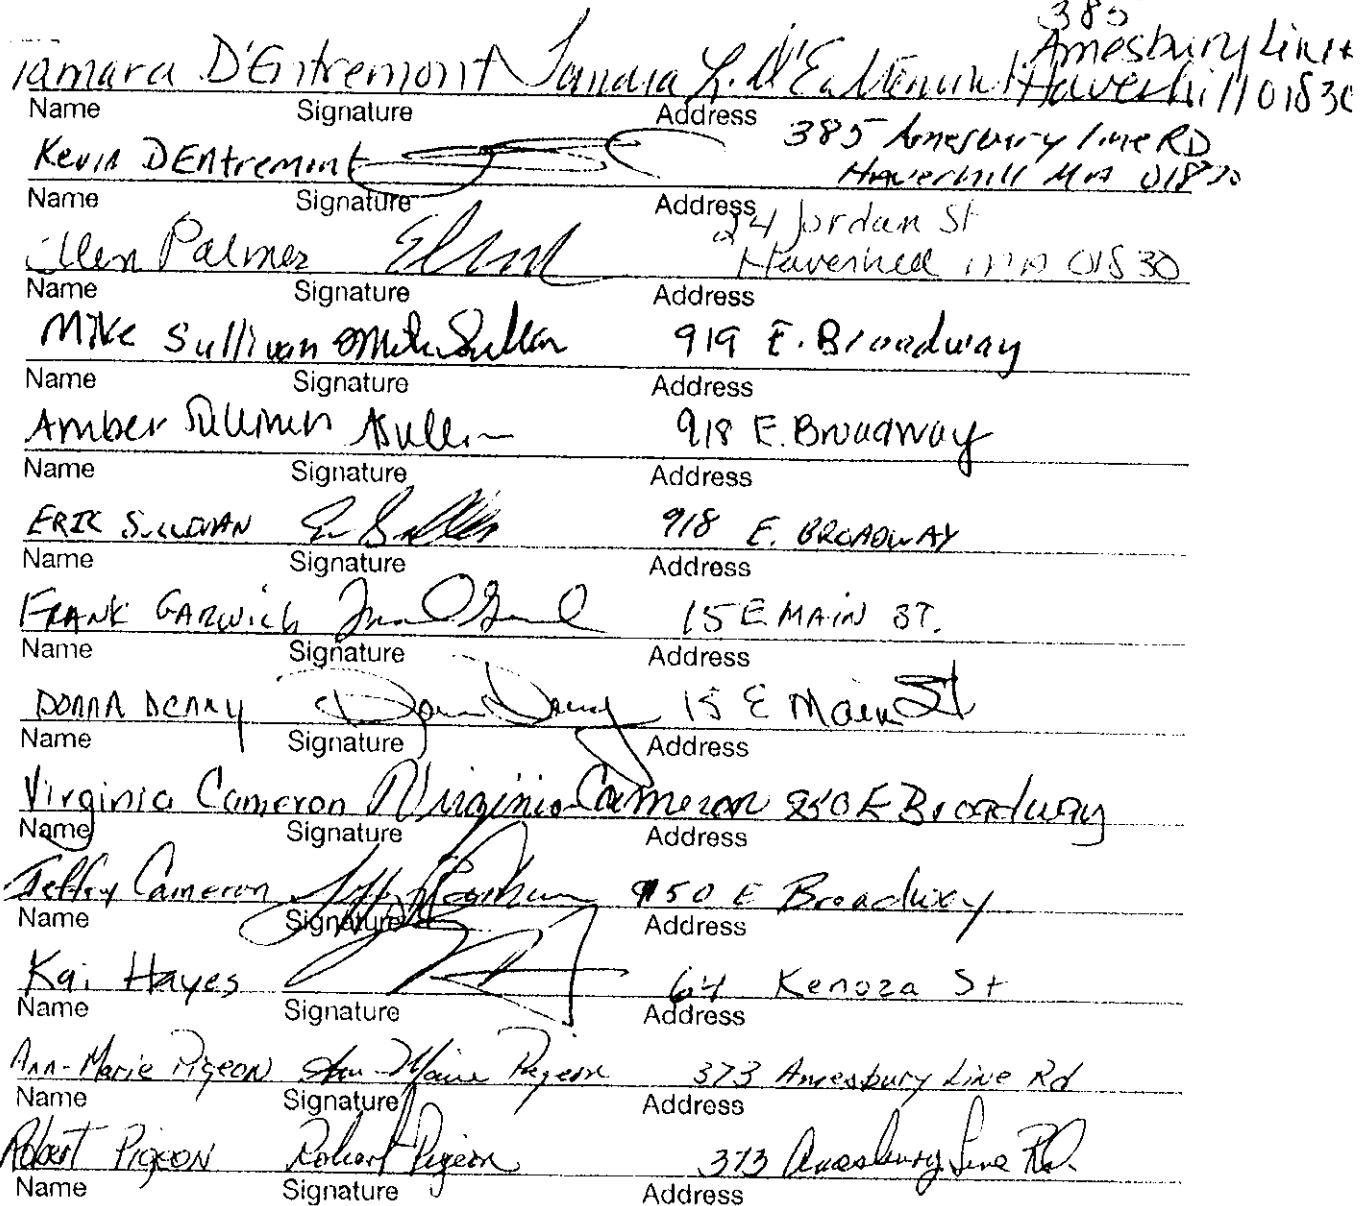 385
Amesbury Line
Tamara D'Entremont Tamara L. D'Entremont Haverhill 01830
Name Signature Address
385 Amesbury line RD
Kevin DEntremont Haverhill MA 01830
Name Signature Address
24 Jordan St
Ellen Palmer Haverhill MA 01830
Name Signature Address
Mike Sullivan Mike Sullivan 919 E. Broadway
Name Signature Address
Amber Sullivan ASulli 918 E. Broadway
Name Signature Address
ERIK SULLIVAN 918 E. BROADWAY
Name Signature Address
FRANK GARWICH 15 E MAIN ST.
Name Signature Address
DONNA DENNY 15 E Main St
Name Signature Address
Virginia Cameron Virginia Cameron 950 E Broadway
Name Signature Address
Jeffry Cameron 950 E Broadway
Name Signature Address
Kai Hayes 64 Kenoza St
Name Signature Address
Ann-Marie Pigeon Ann-Marie Pigeon 373 Amesbury Line Rd
Name Signature Address
Robert Pigeon Robert Pigeon 373 Amesbury Line Rd.
Name Signature Address